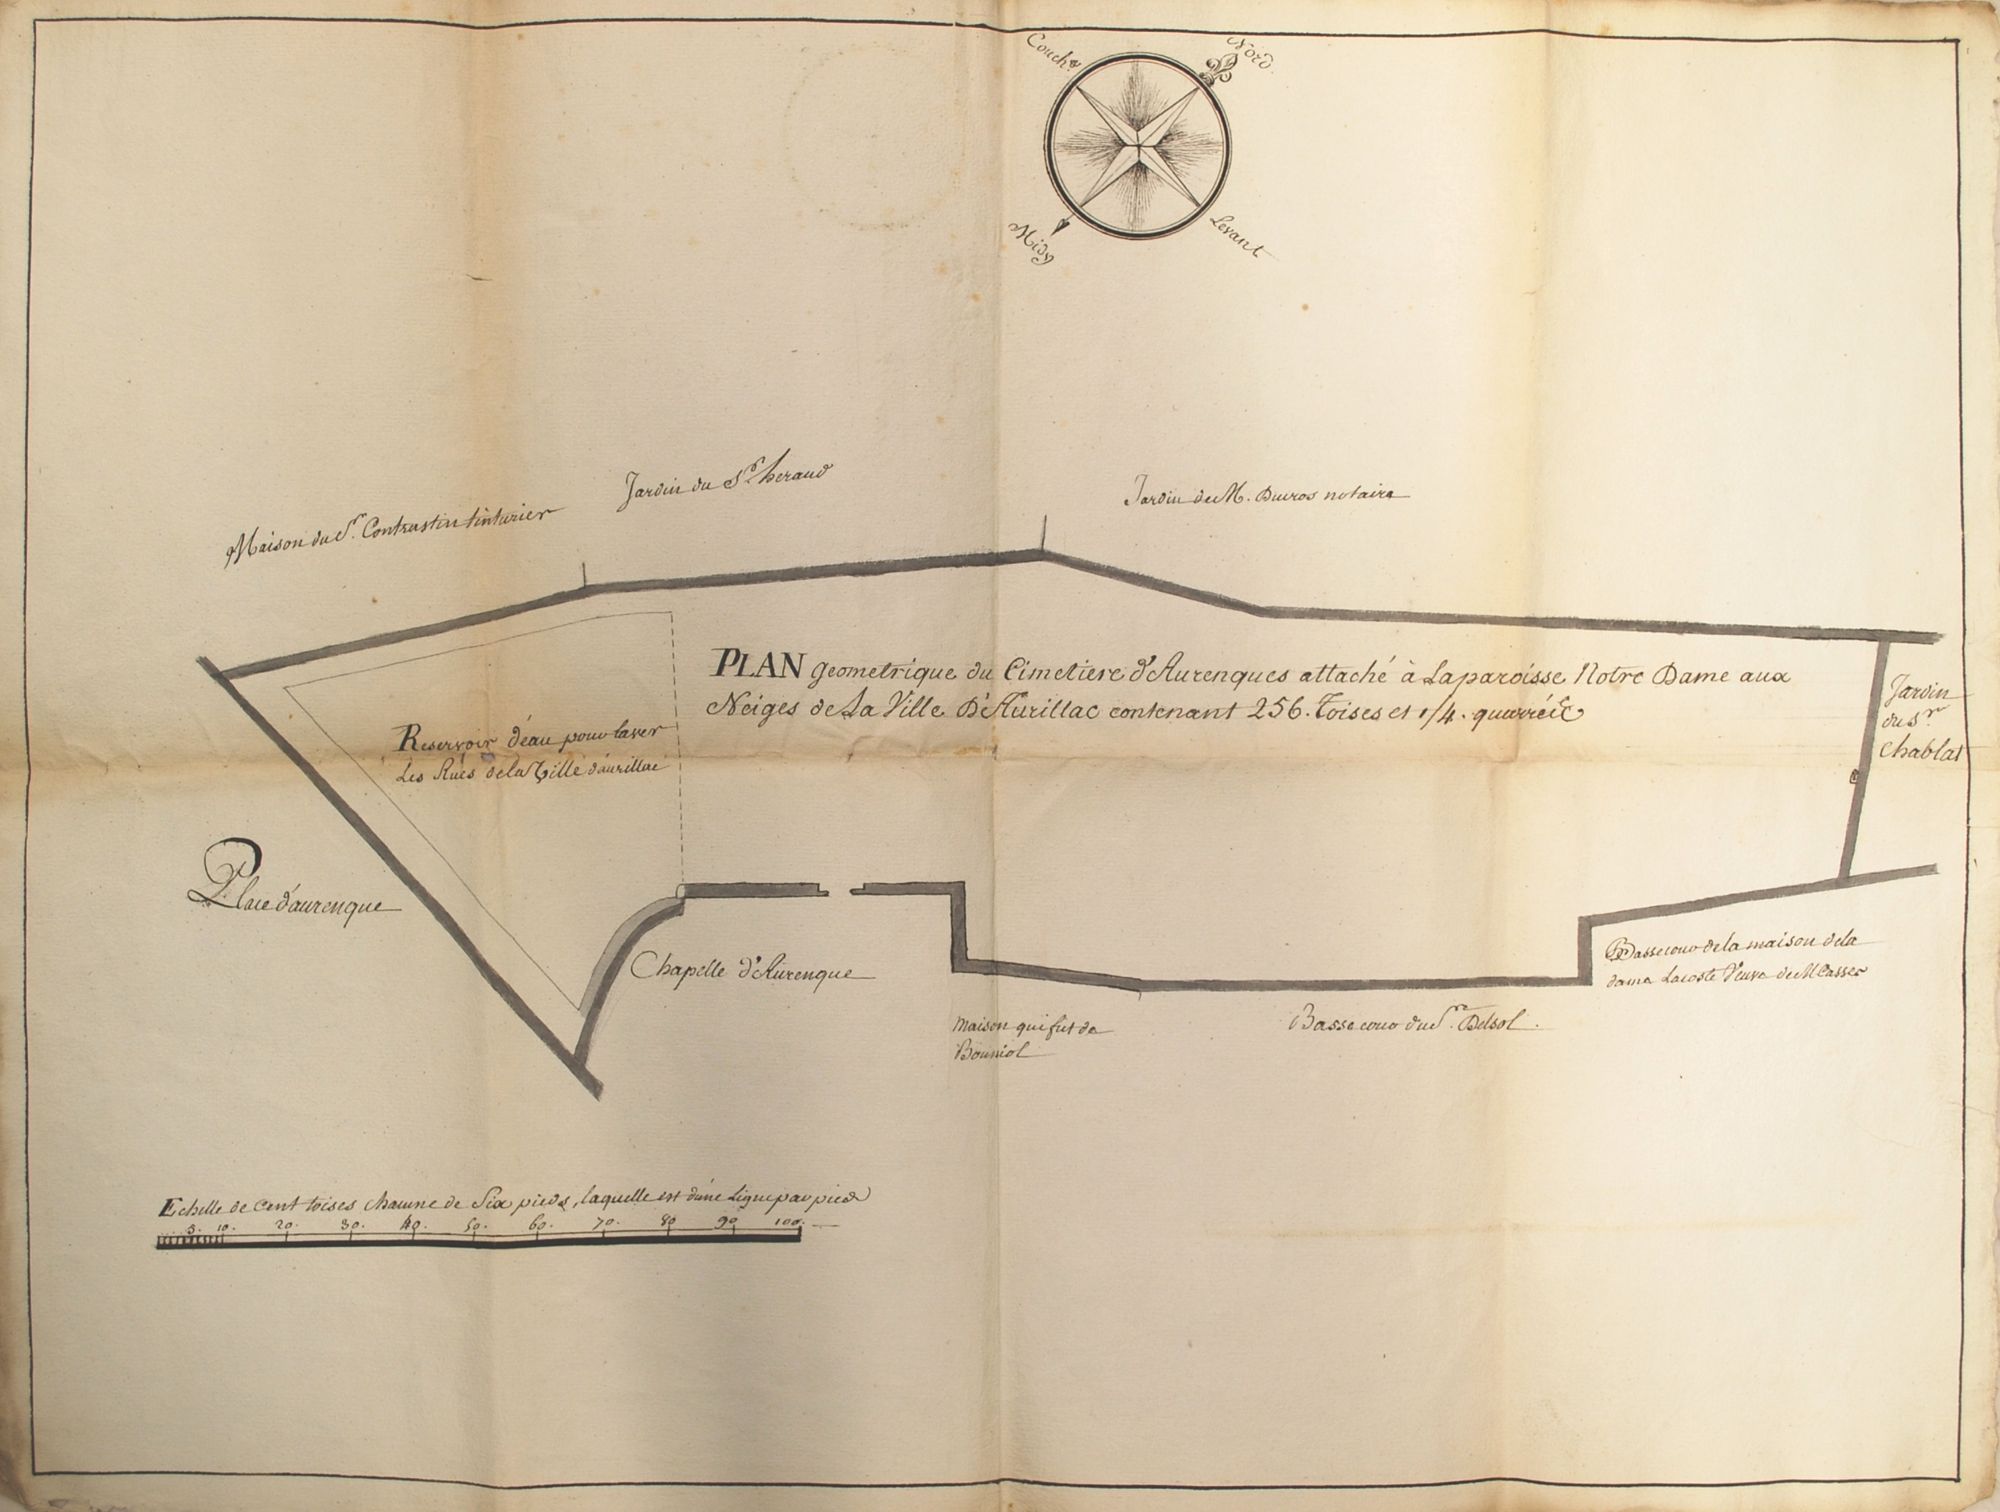 Couch.t
Nord
Midy
Levant
Jardin du S.r heraud
Maison du S.r Contrastin tinturier
Jardin de M. Duvros notaire
PLAN geometrique du Cimetiere d'Aurenques attaché à La paroisse Notre Dame aux
Neiges de La Ville D'Aurillac contenant 256. Toises et 1/4. quarrée
Jardin
du S.r
Chablat
Reservoir d'eau pour laver
Les Rues de la Ville d'aurillac
Place d'aurenque
Chapelle d'Aurenque
Basse cour de la maison de la
dame Lacoste Veuve de M Casses
Maison qui fut de
Bouniol
Basse cour du S.r Delsol.
Echelle de Cent toises chacune de Six pieds, laquelle est d'une Ligne par pied
5. 10. 20. 30. 40. 50. 60. 70. 80 90 100.